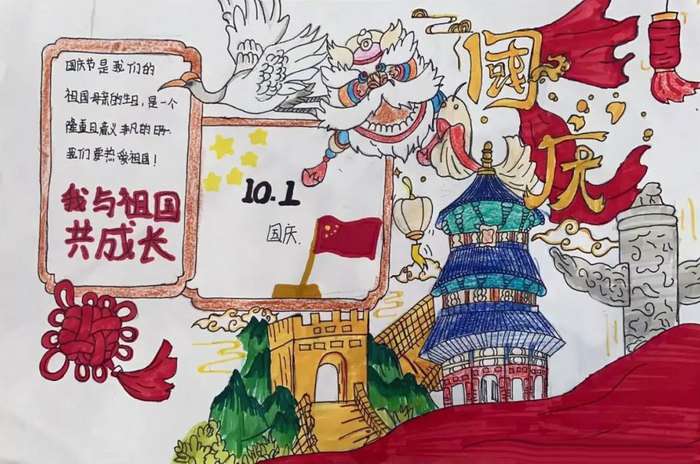 国庆节是我们的
祖国母亲的生日,是一个
隆重且意义非凡的日子.
我们要热爱祖国!
我与祖国
共成长
10.1
国庆.
國
庆